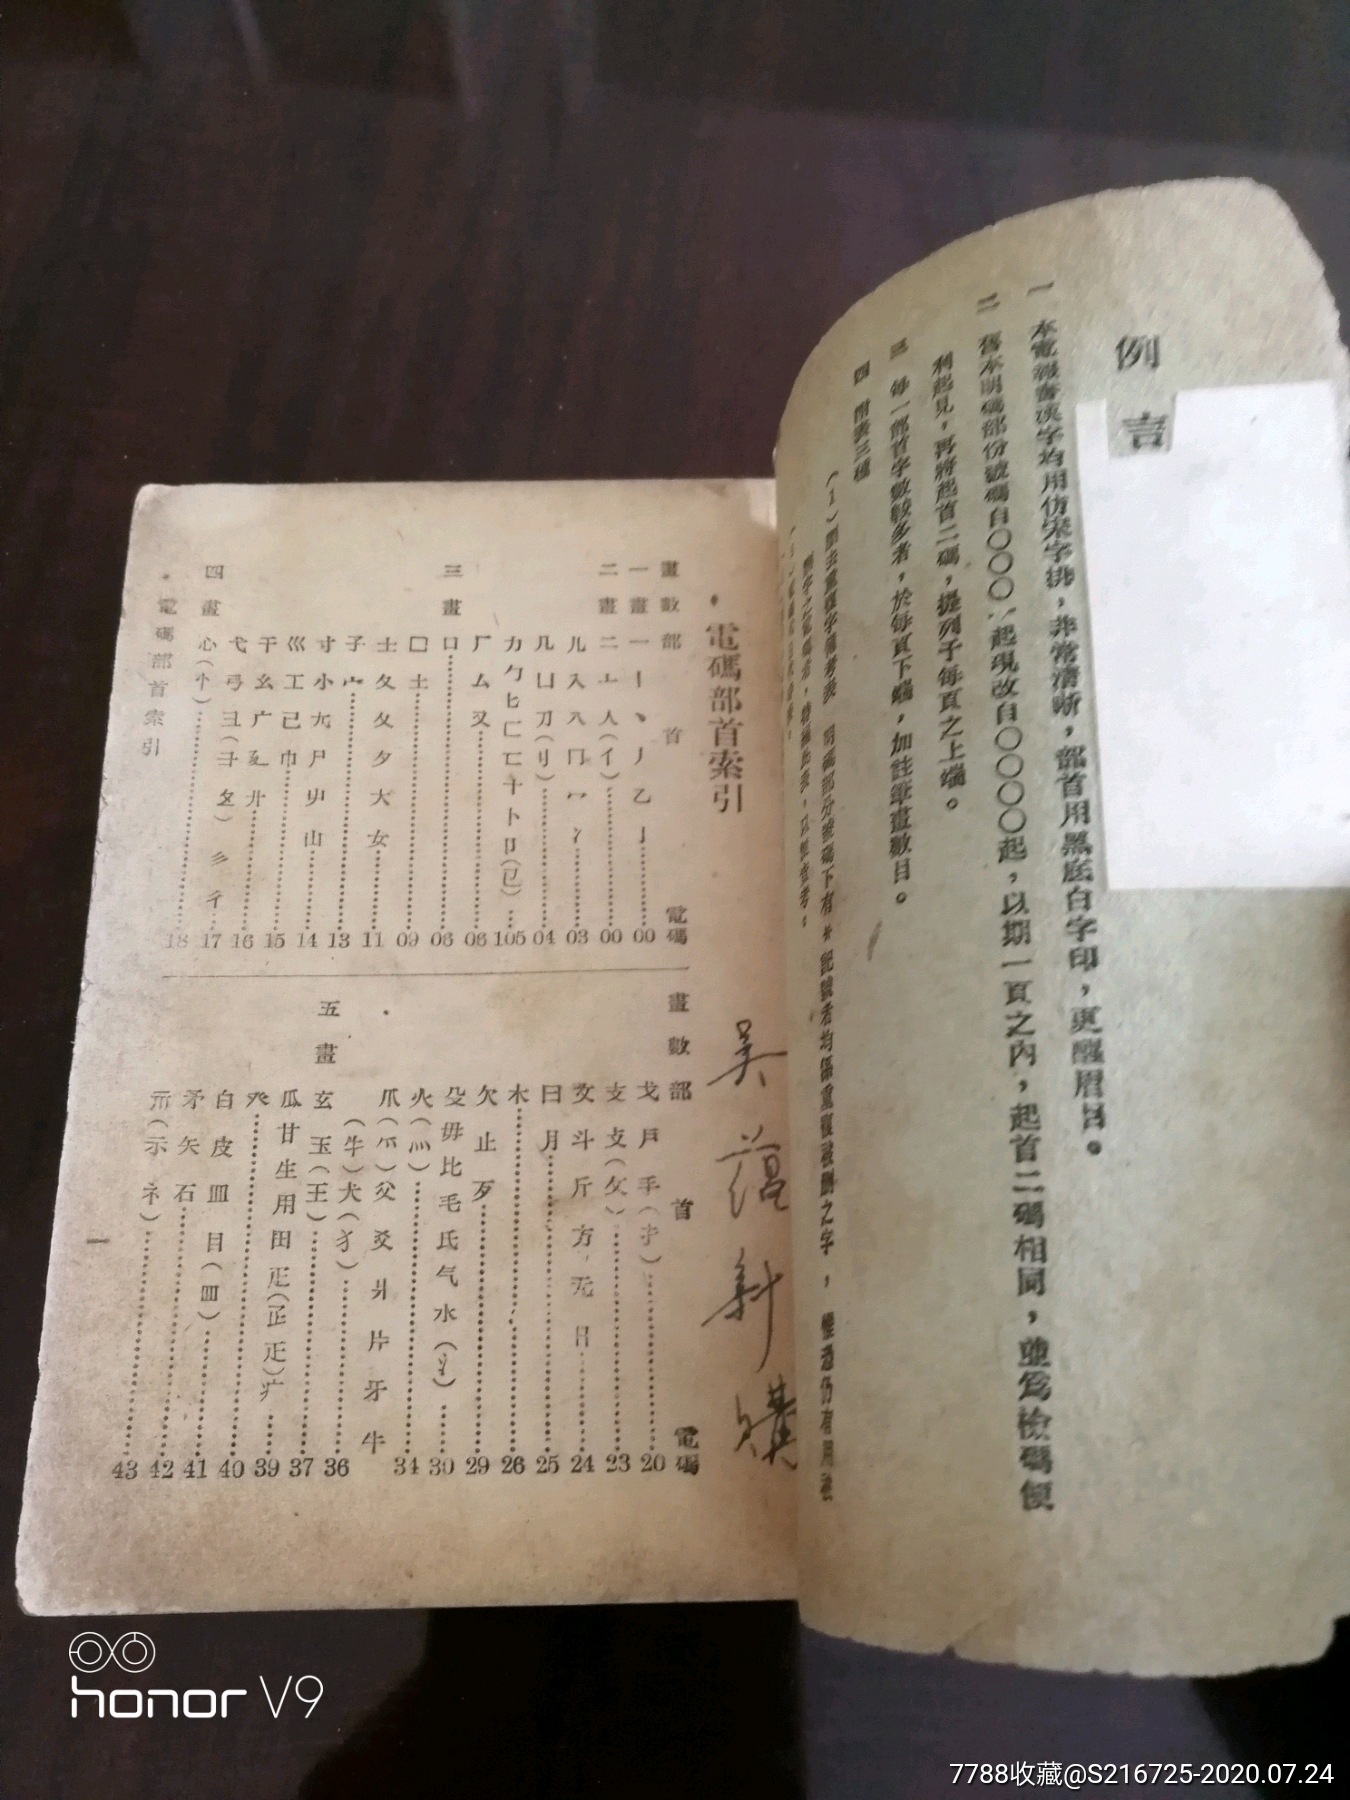 例言
一 本電報書漢字均用仿宋字排，非常清晰，部首用黑底白字印，更醒眉目。
二 舊本明碼部份號碼自〇〇〇一起現改自〇〇〇〇起，以期一頁之內，起首二碼相同，並爲檢碼便
利起見，再將起首二碼，提列于每頁之上端。
三 每一部首字數較多者，於每頁下端，加註筆畫數目。
四 附表三種
明碼部分號碼下有＊記號者均係重復被刪之字，惟恐仍有用者
電碼部首索引
畫數 部首 電碼
一畫 一丨丶丿乙亅 00
二畫 二亠人(亻) 00
儿入八冂冖冫 03
几凵刀(刂) 04
力勹匕匚匸十卜卩(㔾) 105
厂厶又 06
三畫 口 06
囗土 09
士夂夊夕大女 11
子宀 13
寸小尢尸屮山 14
巛工己巾 15
干幺广廴廾 16
弋弓彐(彑)彡彳 17
四畫 心(忄) 18
畫數 部首 電碼
戈戶手(扌) 20
支攴(攵) 23
文斗斤方无日 24
曰月 25
木 26
欠止歹 29
殳毋比毛氏气水(氵) 30
火(灬) 34
爪(爫)父爻爿片牙牛
(牜)犬(犭) 36
五畫 玄玉(王) 37
瓜甘生用田疋疒 39
癶 40
白皮皿目(罒) 41
矛矢石 42
示(礻) 43
電碼部首索引
一
吳蘊
購
honor V9
7788收藏@S216725-2020.07.24